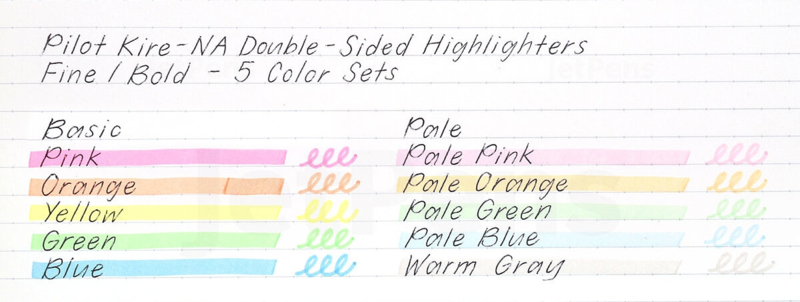 Pilot Kire-NA Double-Sided Highlighters
Fine / Bold - 5 Color Sets
Basic
Pink
Orange
Yellow
Green
Blue
Pale
Pale Pink
Pale Orange
Pale Green
Pale Blue
Warm Gray
JetPens